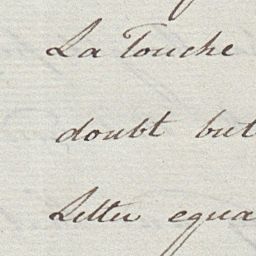 La Touche
doubt but
Letter equa